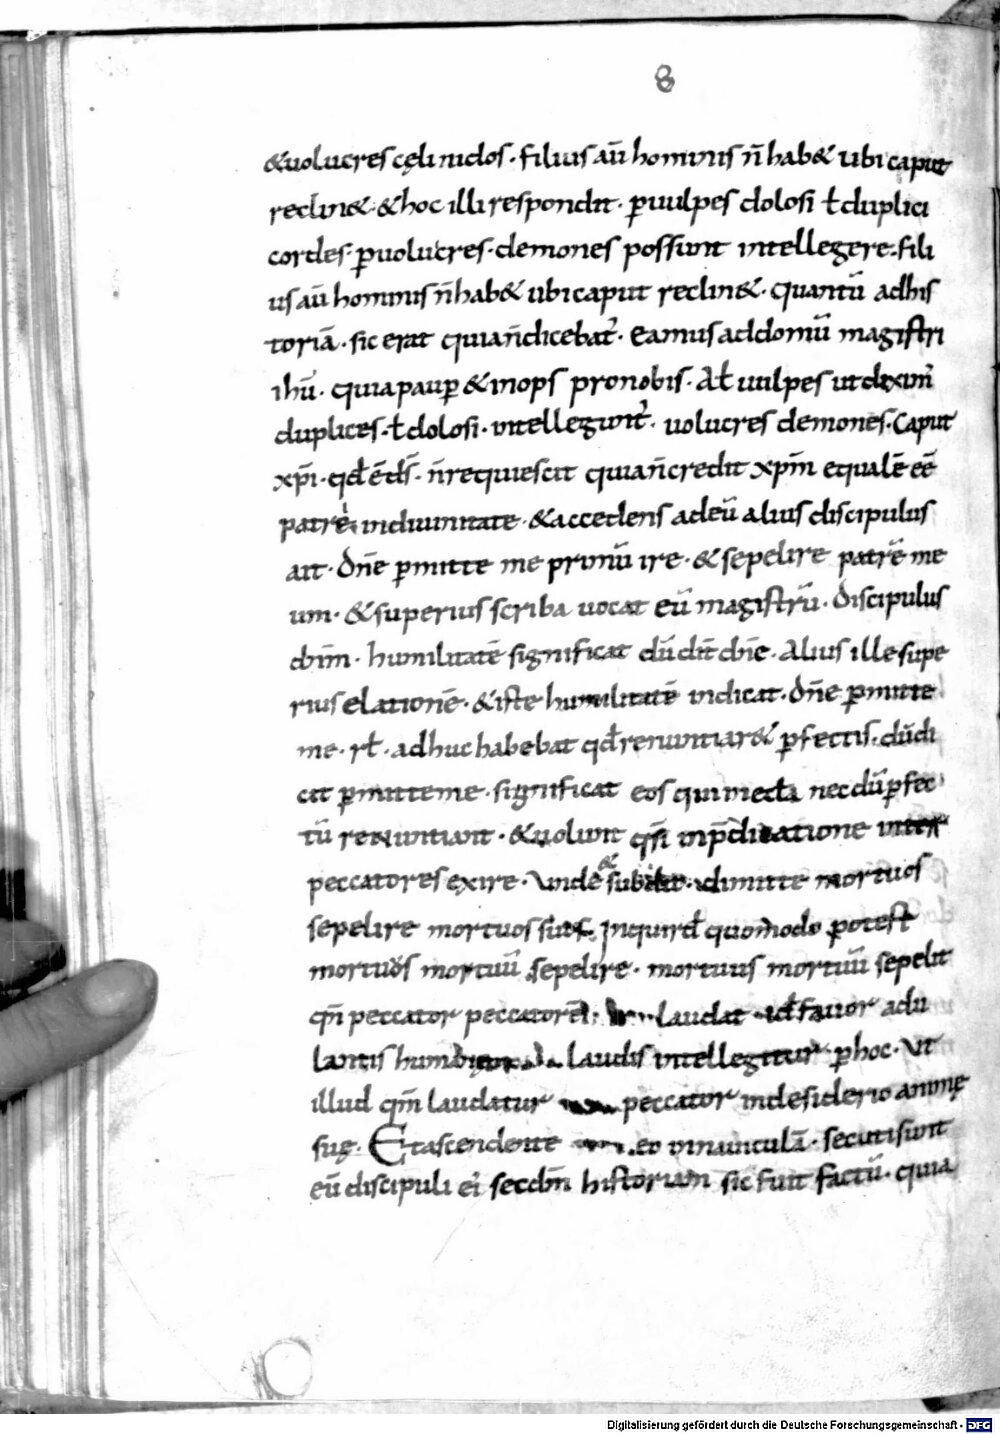 8
&uolucres cęli nidos · filius aū hominis n̄ hab& ubi caput
reclin& · & hoc illi respondit · ꝑ uulpes dolosi ł duplici
cordes · ꝑ uolucres · demones possunt intellegere · fili
us aū hominis n̄ hab& ubi caput reclin& · quantū ad his
toriā · sic erat quia n̄ dicebat᷑ · Eamus ad domū magistri
ihū · quia paup̱ & inops pro nobis · Ał uulpes ut diximꝰ
duplices · ł dolosi · intellegunt᷑ · uolucres demones · Caput
xp̄i · qđ ē d̄s · n̄ requiescit quia n̄ credit xp̄m equalē eē
patrē in diuinitate · & accedens ad eū alius discipulus
ait · Dn̄e ꝑmitte me primū ire · & sepelire patrē me
um · & superius scriba uocat eū magistrū · Discipulus
humilitatē significat dū dic̄ dn̄e · Alius ille supe
rius elationē · & iste humilitatē indicat · dn̄e ꝑmitte
me · rł · adhuc habebat qđ renuntiar& ꝑfectis · dū di
cit ꝑmitte me · significat eos qui necdū ꝑfec
tū renuntiant · & uolunt qs̄i in p̄dicatione inter
peccatores exire · Unde & dimitte mortuos
sepelire mortuos suos · Inquirđ quomodo potest
mortuos mortuū sepelire · mortuus mortuū sepelit
qm̄ peccator peccatorē laudat · fauor adu
lantis laudis intellegitur ꝑ hoc · Ut
illud qm̄ laudatur peccator in desideriо animę
suę · Et ascendente eo in nauiculā · secuti sunt
eū discipuli ei᷑ secdm̄ historiam sic fuit factū · quia
Digitalisierung gefördert durch die Deutsche Forschungsgemeinschaft - DFG